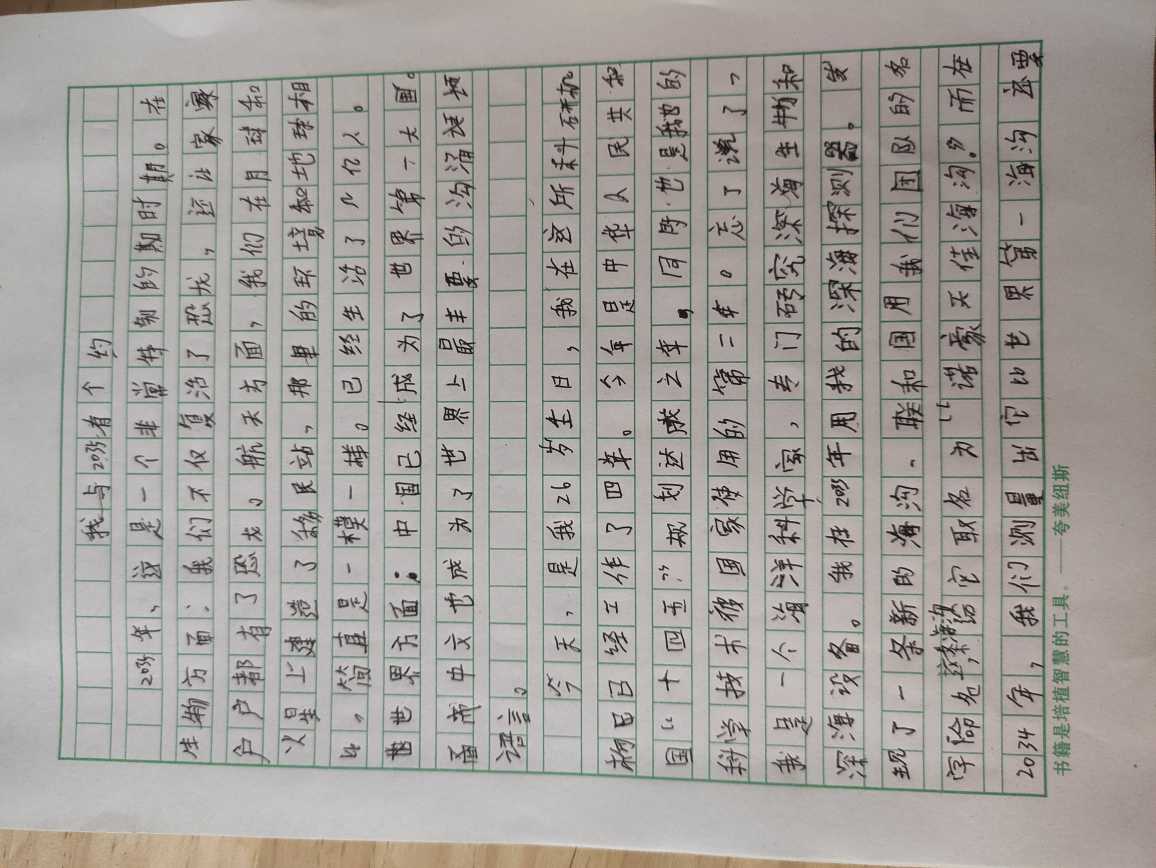 我与2035有个约
2035年，这是一个非常特别的期时期。在
生物方面：我们不仅复活了恐龙，还让家家
户户都有了恐龙。航天方面，我们在月球和
火星上建造了移民站，那里的环境和地球相
比。简直是一模一样。已经生活了几亿人。
世界方面：中国已经成为了世界第一大国。
而中文也成为了世界上最主要的沟通
语言。
今天，是我26岁生日，我在这所科研机
构已经工作了四年。今年是中华人民共和
国“十四五”规划达成之年。同时也是我的
科学技术被国家使用的第二年。忘了说了，
我是一个海洋科学家，专门研究深海生物和
深海设备。我在2035年用我的深海探测器。发
现了一条新的海沟。联和国用我们国队的名
字命名，这条海沟给它取名为“诺豪天佳海沟。”而在
2034年，我们测量出它比世界第一海沟还要
书籍是培植智慧的工具。——夸美纽斯